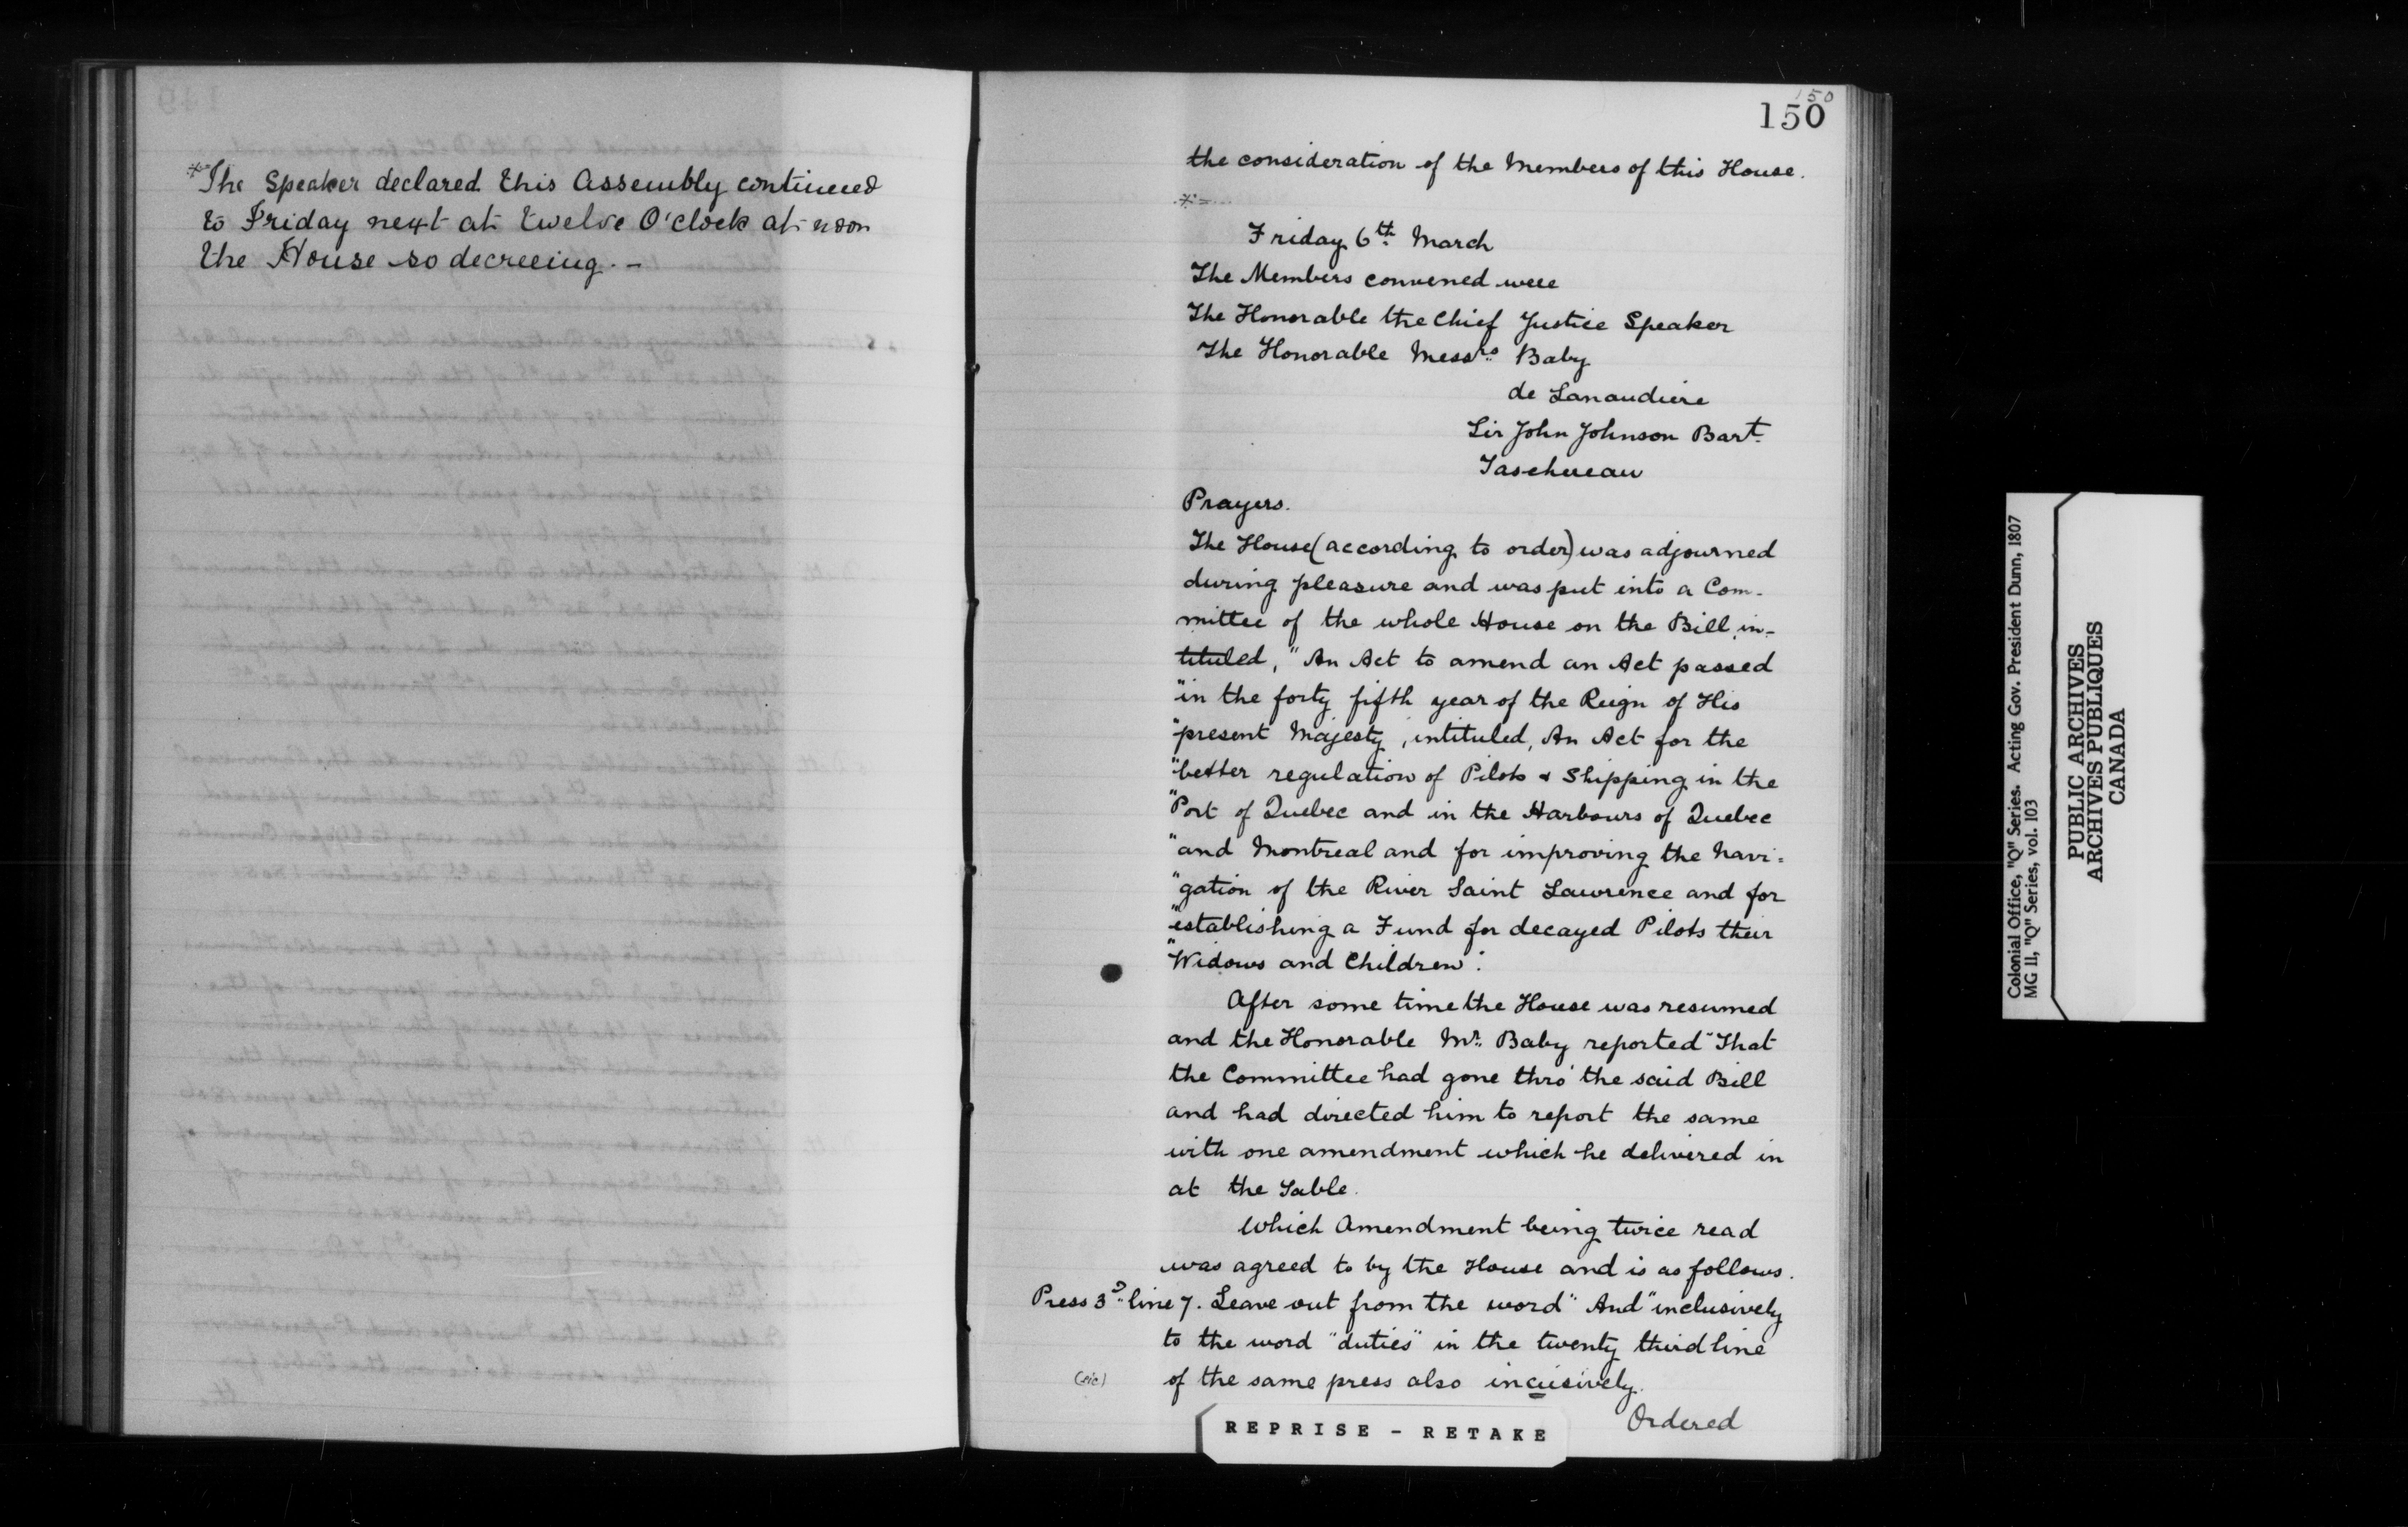 *The Speaker declared this Assembly continued
to Friday next at twelve O'clock at noon
the House so decreeing. -
150
150
the consideration of the Members of this House.
*
Friday 6th. March
The Members convened were
The Honorable the Chief Justice Speaker
The Honorable Messrs. Baby
de Lanaudiere
Sir John Johnson Bart.
Taschereau
Prayers.
The House (according to order) was adjourned
during pleasure and was put into a Com-
mittee of the whole House on the Bill in-
tituled, "An Act to amend an Act passed
"in the forty fifth year of the Reign of His
"present Majesty, intituled, An Act for the
"better regulation of Pilots & Shipping in the
"Port of Quebec and in the Harbours of Quebec
"and Montreal and for improving the Navi=
"gation of the River Saint Lawrence and for
"establishing a Fund for decayed Pilots their
"Widows and Children".
After some time the House was resumed
and the Honorable Mr. Baby reported "That
the Committee had gone thro' the said Bill
and had directed him to report the same
with one amendment which he delivered in
at the Table.
Which Amendment being twice read
was agreed to by the House and is as follows.
Press 3d. line 7. Leave out from the word "And" inclusively
to the word "duties" in the twenty third line
(sic) of the same press also inciusively.
Ordered
REPRISE - RETAKE
Colonial Office, "Q" Series. Acting Gov. President Dunn, 1807
MG 11, "Q" Series, vol. 103
PUBLIC ARCHIVES
ARCHIVES PUBLIQUES
CANADA